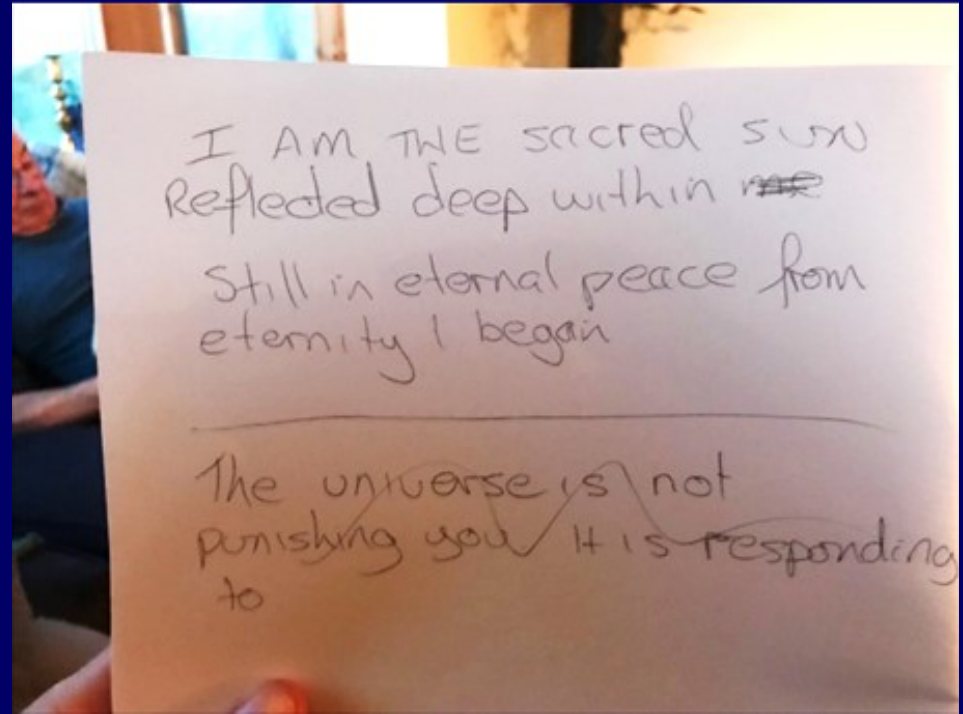 I AM THE sacred sun
Reflected deep within
Still in eternal peace from
eternity I began
The universe is not
punishing you It is responding
to